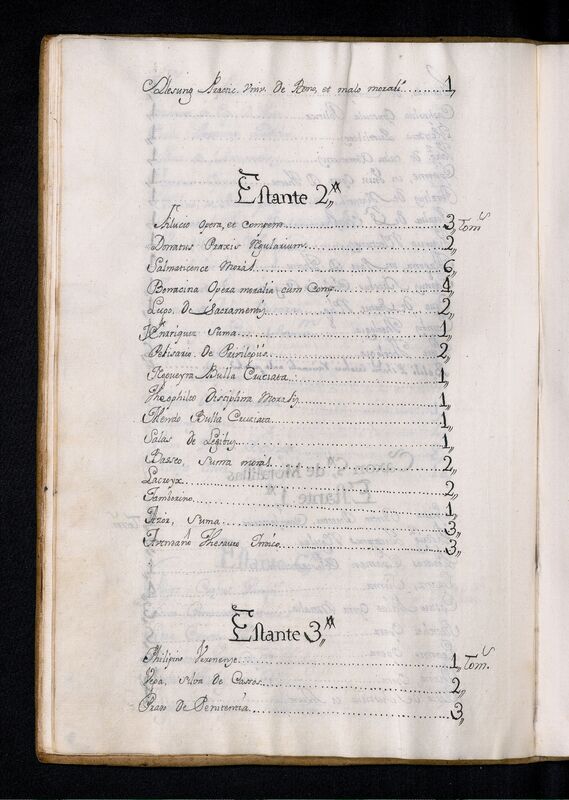 Univ. De Bono, et malo morali 1,,
Estante 2,,ᵃ
opera, et compem. 3,, tomˢ
Donatus Praxis Regularium. 2,,
Salmaticence Moral. 6,,
Bonacina Opera moralia cum Comp. 4,,
Lugo. De Sacramentis. 2,,
Henriquez Suma. 1,,
Pelisario De Privilegiis. 2,,
Nogueyra Bulla Cruciata. 1,,
Theophilo Disciplina Moralis. 1,,
Mendo Bulla Cruciata. 1,,
Salas de Legibus. 1,,
Basseo, Suma moral. 2,,
Lacroyx. 2,,
Tamborino. 1,,
Azor, Suma. 3,,
Thesauro Indico. 3,,
Estante 3,,ᵃ
Philipino Veronense. 1,, tom.ˢ
Vega, Silva de Cassos. 2,,
De Penitencia. 3,,